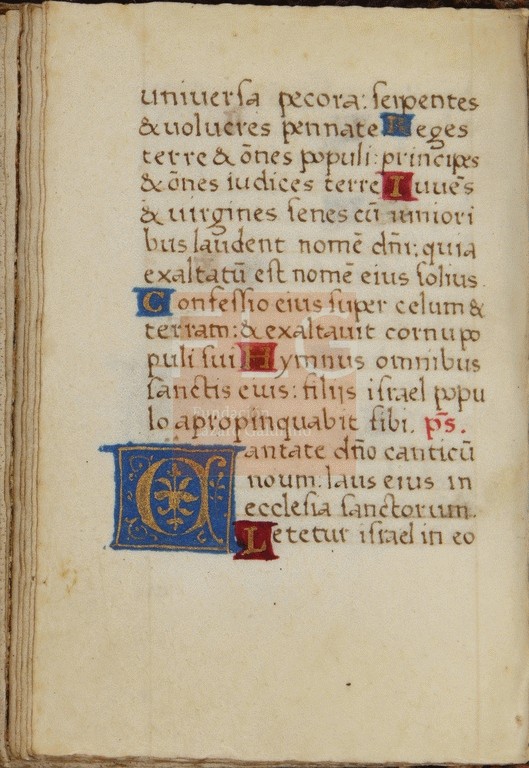 uniuersa pecora: serpentes
& uolucres pennate Reges
terre & o͞nes populi: principes
& o͞nes iudices terre Iuue͞s
& uirgines senes cu͞ iuniori
bus laudent nome͞ dn͞i: quia
exaltatu͞ est nome͞ eius solius.
Confessio eius super celum &
terram: & exaltauit cornu po
puli sui Hymnus omnibus
sanctis eius: filijs israel popu
lo apropinquabit sibi. ps͞.
Cantate dn͞o canticu͞
nouum. laus eius in
ecclesia sanctorum.
Letetur israel in eo
FLG
Fundación
Lázaro Galdiano